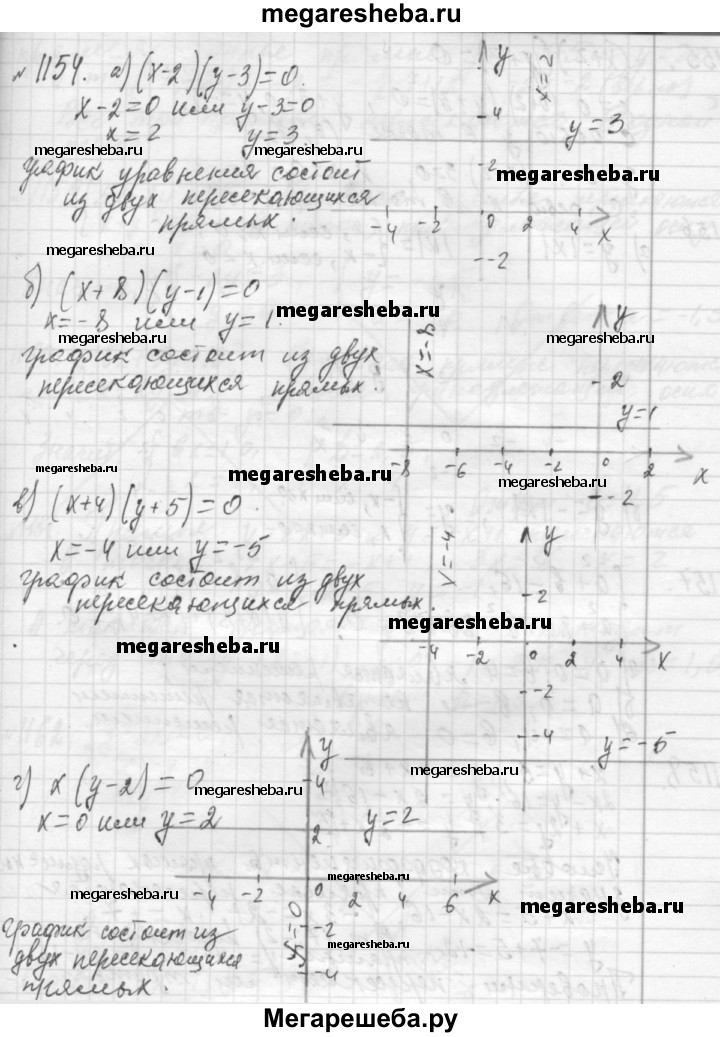 megaresheba.ru
№ 1154. а) (x-2)(y-3)=0.
x-2=0 или y-3=0
x=2 y=3.
megaresheba.ru megaresheba.ru
График уравнения состоит
из двух пересекающихся
прямых.
y
x=2
4
y=3
2
megaresheba.ru
-4 -2 0 2 4 x
-2
megaresheba.ru
б) (x+8)(y-1)=0
x=-8 или y=1.
megaresheba.ru
megaresheba.ru
график состоит из двух
пересекающихся прямых.
megaresheba.ru
x=-8
y
2
y=1
-8 -6 -4 -2 0 2 x
-2
megaresheba.ru
megaresheba.ru
в) (x+4)(y+5)=0.
x=-4 или y=-5
график состоит из двух
пересекающихся прямых.
megaresheba.ru
megaresheba.ru
x=-4
y
2
-4 -2 0 2 4 x
-2
-4
y=-5
г) x(y-2)=0
x=0 или y=2
megaresheba.ru
megaresheba.ru
y
4
2
y=2
-4 -2 0 2 4 6 x
x=0
-2
-4
megaresheba.ru
megaresheba.ru
megaresheba.ru
megaresheba.ru
график состоит из
двух пересекающихся
прямых.
megaresheba.ru
Мегарешеба.ру